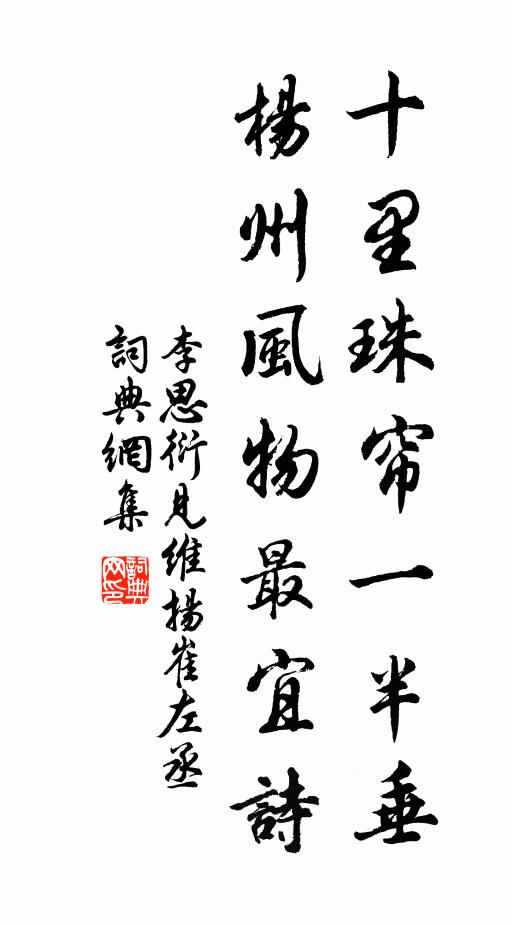 十里珠帘一半垂
楊州風物最宜詩
李思衍見維揚崔左丞
詞典網集
詞典网印